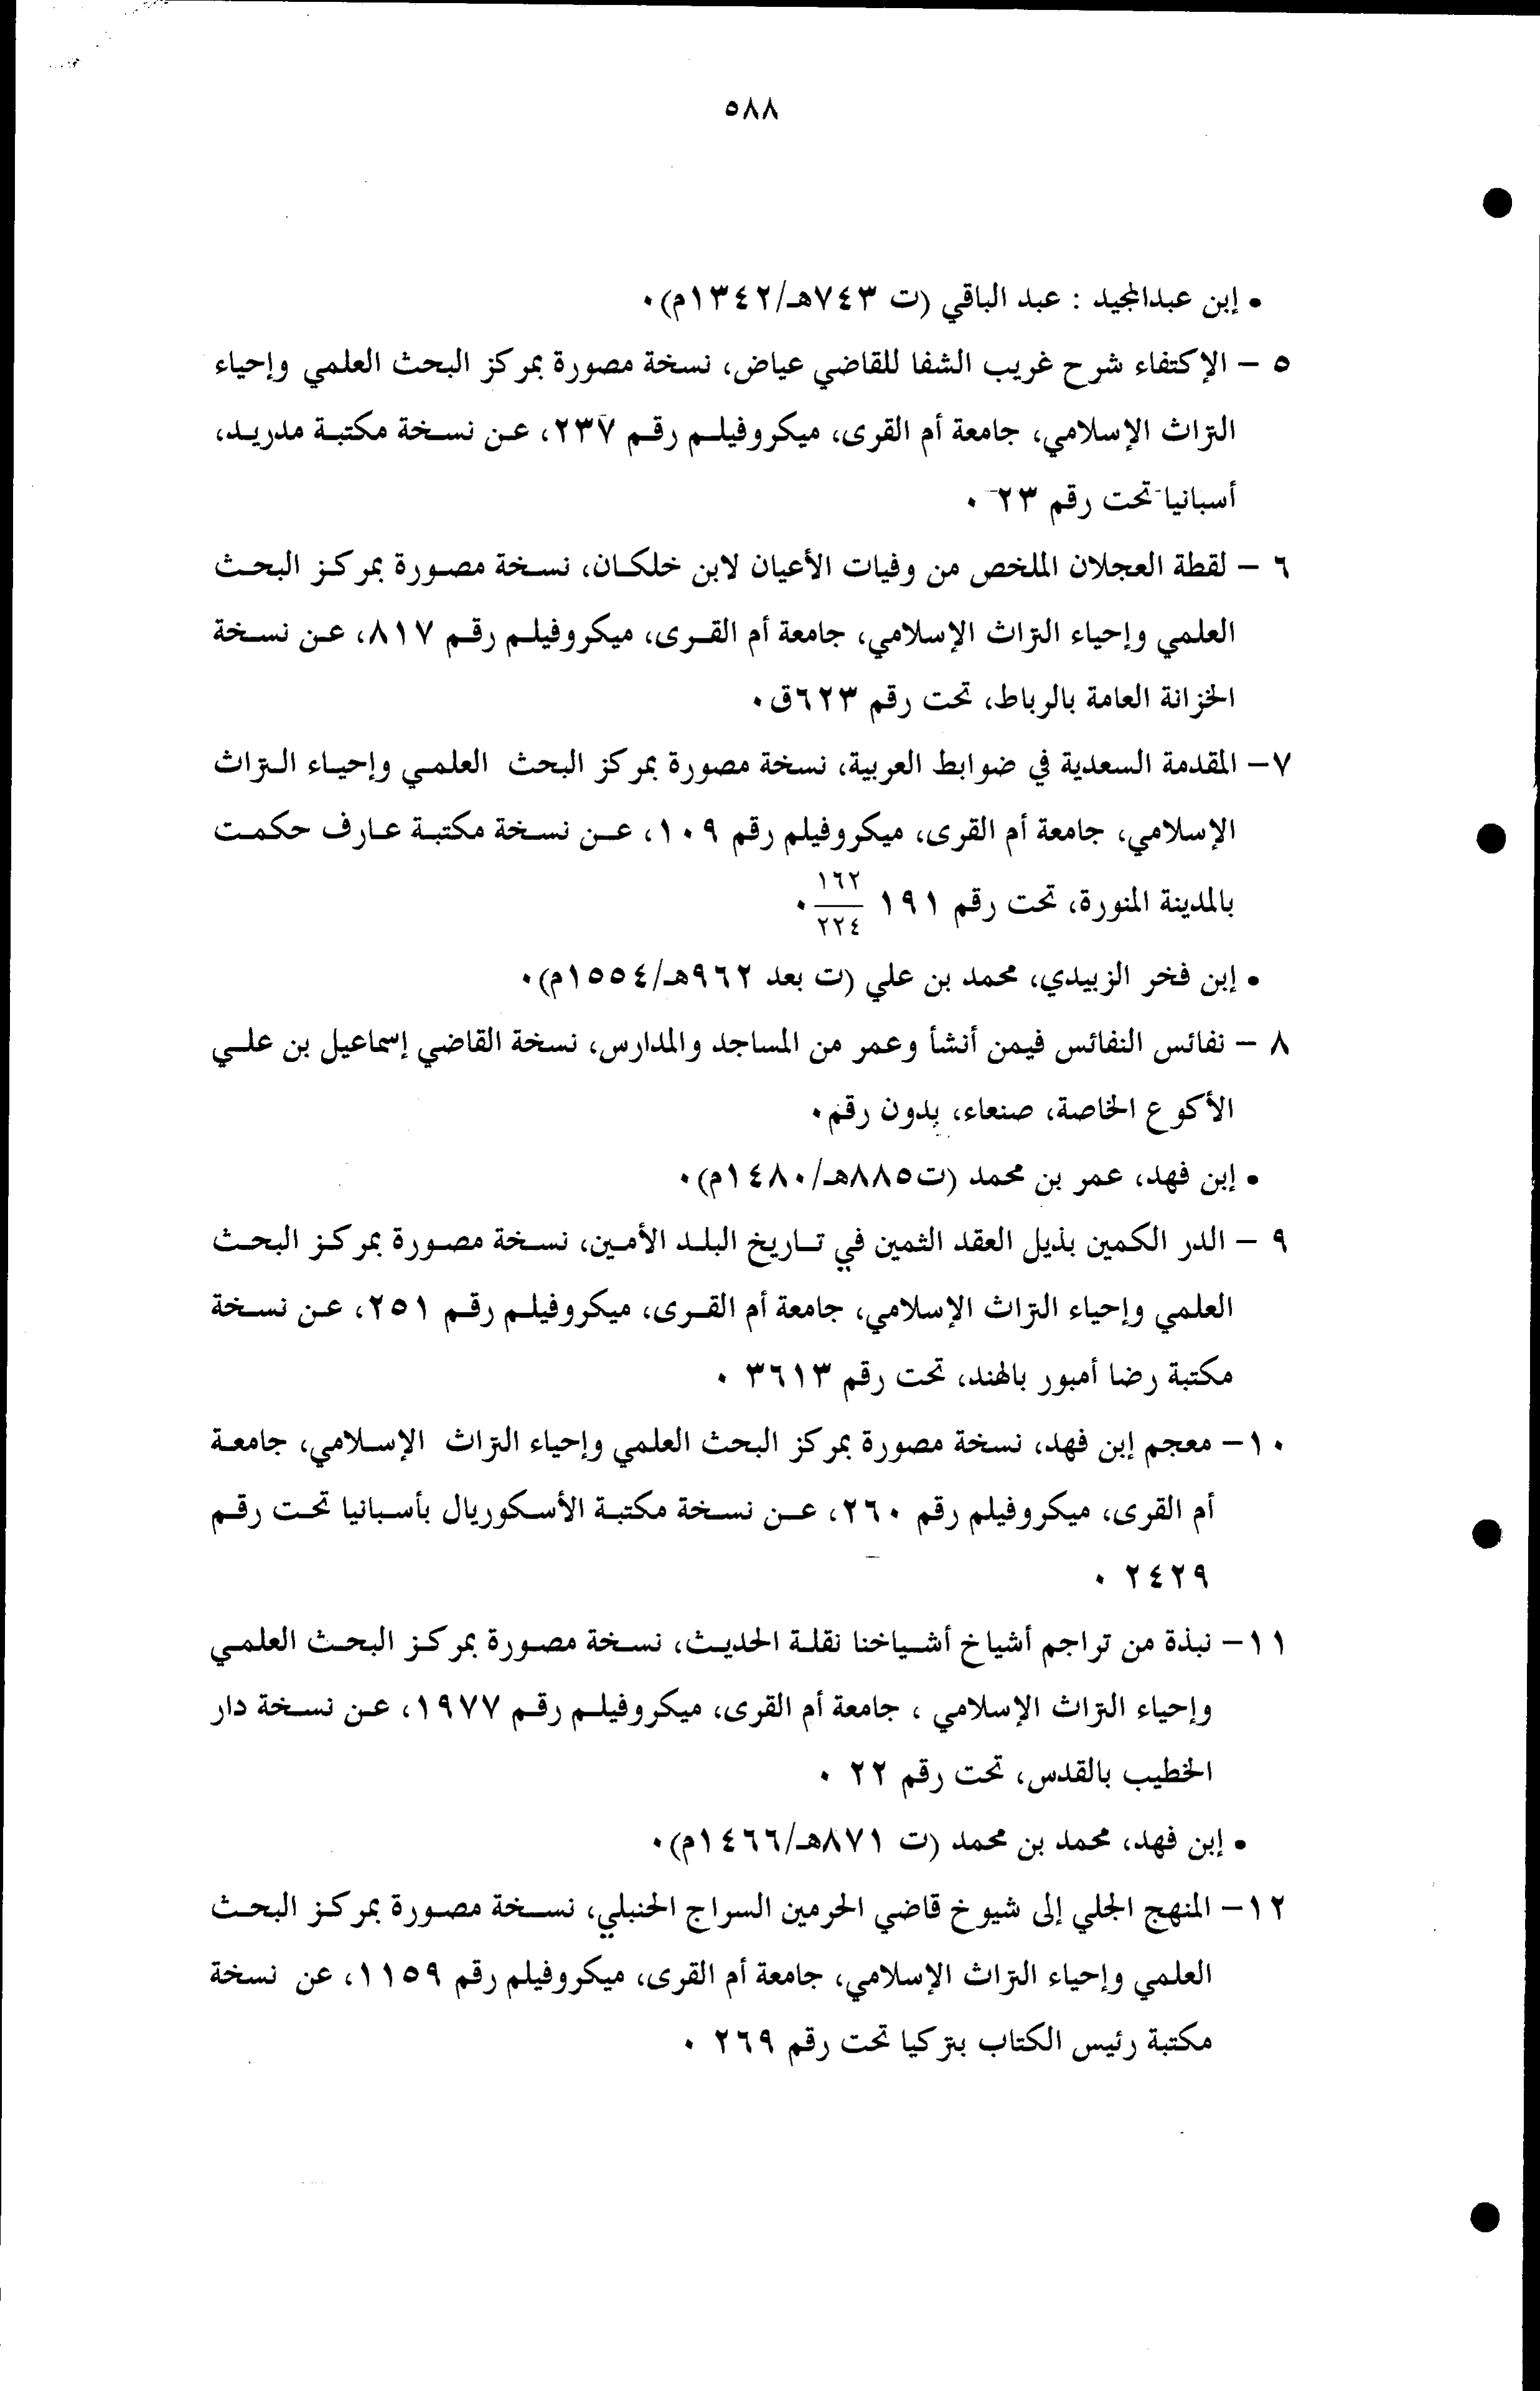 ٥٨٨
• إبن عبدالمجيد : عبد الباقي (ت ٧٤٣هـ/١٣٤٢م)٠
٥ – الإكتفاء شرح غريب الشفا للقاضي عياض، نسخة مصورة بمركز البحث العلمي وإحياء
التراث الإسلامي، جامعة أم القرى، ميكروفيلم رقم ٢٣٧، عن نسخة مكتبة مدريد،
أسبانيا تحت رقم ٢٣ ٠
٦ – لقطة العجلان الملخص من وفيات الأعيان لابن خلكان، نسخة مصورة بمركز البحث
العلمي وإحياء التراث الإسلامي، جامعة أم القرى، ميكروفيلم رقم ٨١٧، عن نسخة
الخزانة العامة بالرباط، تحت رقم ٦٢٣ق٠
٧– المقدمة السعدية في ضوابط العربية، نسخة مصورة بمركز البحث العلمي وإحياء التراث
الإسلامي، جامعة أم القرى، ميكروفيلم رقم ١٠٩، عن نسخة مكتبة عارف حكمت
بالمدينة المنورة، تحت رقم ١٩١ ١٦٢/٢٢٤ ٠
• إبن فخر الزبيدي، محمد بن علي (ت بعد ٩٦٢هـ/١٥٥٤م)٠
٨ – نفائس النفائس فيمن أنشأ وعمر من المساجد والمدارس، نسخة القاضي إسماعيل بن علي
الأكوع الخاصة، صنعاء، بدون رقم٠
• إبن فهد، عمر بن محمد (ت٨٨٥هـ/١٤٨٠م)٠
٩ – الدر الكمين بذيل العقد الثمين في تاريخ البلد الأمين، نسخة مصورة بمركز البحث
العلمي وإحياء التراث الإسلامي، جامعة أم القرى، ميكروفيلم رقم ٢٥١، عن نسخة
مكتبة رضا أمبور بالهند، تحت رقم ٣٦١٣ ٠
١٠– معجم إبن فهد، نسخة مصورة بمركز البحث العلمي وإحياء التراث الإسلامي، جامعة
أم القرى، ميكروفيلم رقم ٢٦٠، عن نسخة مكتبة الأسكوريال بأسبانيا تحت رقم
٢٤٢٩ ٠
١١– نبذة من تراجم أشياخ أشياخنا نقلة الحديث، نسخة مصورة بمركز البحث العلمي
وإحياء التراث الإسلامي ، جامعة أم القرى، ميكروفيلم رقم ١٩٧٧، عن نسخة دار
الخطيب بالقدس، تحت رقم ٢٢ ٠
• إبن فهد، محمد بن محمد (ت ٨٧١هـ/١٤٦٦م)٠
١٢– المنهج الجلي إلى شيوخ قاضي الحرمين السراج الحنبلي، نسخة مصورة بمركز البحث
العلمي وإحياء التراث الإسلامي، جامعة أم القرى، ميكروفيلم رقم ١١٥٩، عن نسخة
مكتبة رئيس الكتاب بتركيا تحت رقم ٢٦٩ ٠